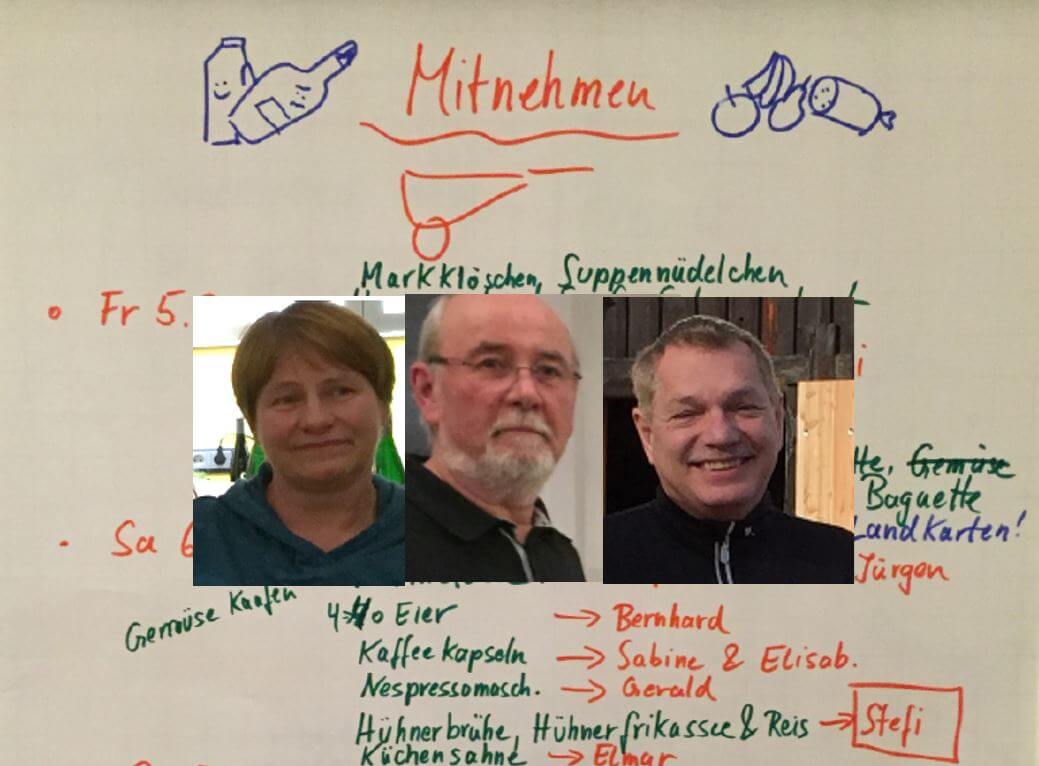 Mitnehmen
Markklöschen, Suppennüdelchen
• Fr 5.
i
tte, Gemüse
Baguette
Landkarten!
• Sa 6
Jürgen
Gemüse Kaufen
Eier → Bernhard
Kaffeekapseln → Sabine & Elisab.
Nespressomasch. → Gerald
Hühnerbrühe, Hühnerfrikassee & Reis → Stefi
Küchensahne → Elmar